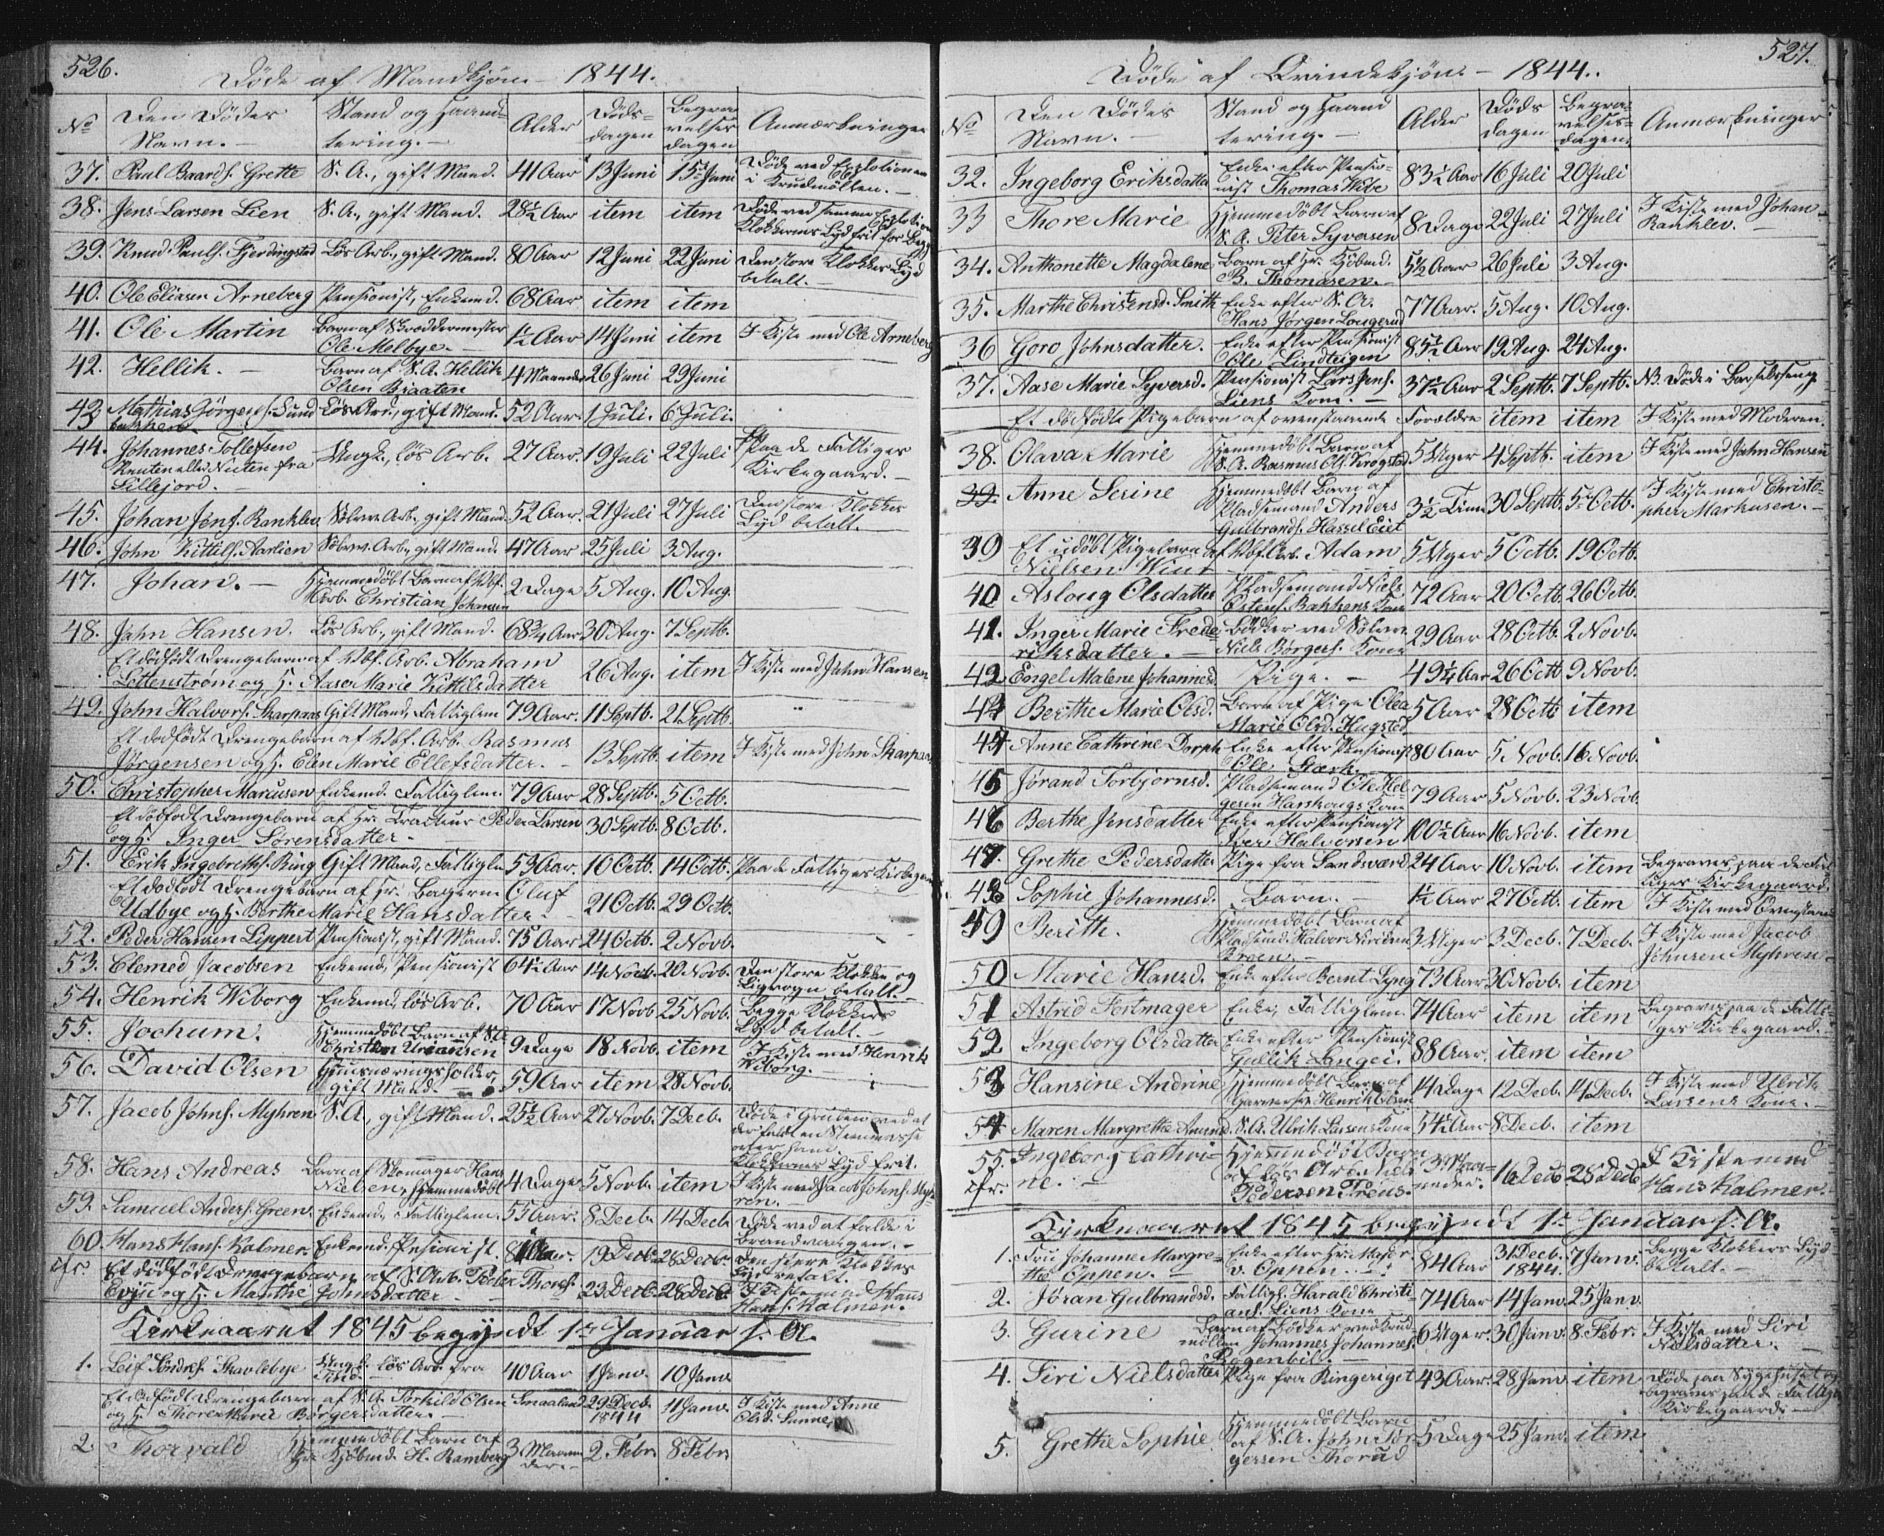 526.
Døde af Mandkjøn — 1844.
No Den Dødes Navn. — Stand og Haandtering. — Alder Dødsdagen Begravelsesdagen Anmærkninger
37. Paul Baards. Grette S. A., gift Mand. 41 Aar 13 Juni 15 Juni Døde ved Explotionen i Krudmöllen. —
38. Jens Larsen Lien S. A., gift Mand. 28½ Aar item item Døde ved samme Explotion Klokkernes Lyd frit for Begge
39. Knud Pauls. Fjerdingstad Lös Arb., gift Mand. 80 Aar 12 Juni 22 Juni Den store Klokkes Lyd betalt. —
40. Ole Eliasen Arneberg Pensionist, Enkemd. 68 Aar item item
41. Ole Martin Barn af Skræddermester Ole Melbye. — 1½ Aar 14 Juni item I Kiste med Ole Arneberg
42. Hellik. — Barn af S. A. Hellik Olsen Braaten 4 Maaneder 26 Juni 29 Juni
43 Mathias Jörgens. Sundbakken Lös Arb., gift Mand. 52 Aar. 1 Juli. 6 Juli.
44. Johannes Tollefsen fra Sillejord. Ungk., lös Arb. 27 Aar 19 Juli 22 Juli Paa de Fattiges Kirkegaard. —
45. Johan Jens. Ranklev Sölvv. Arb., gift Mand 52 Aar. 21 Juli 27 Juli Den store Klokkes Lyd betalt. —
46. John Kittils. Aaslien Sölvv. Arb., gift Mand. 47 Aar 25 Juli 3 Aug.
47. Johan. — Hjemmedøbt Barn af Arb. Christian Johansen 2 Dage 5 Aug. 10 Aug.
48. John Hansen. Lös Arb., gift Mand. 68¾ Aar 30 Aug. 7 Septb.
Et dödfödt Drengebarn af Arb. Abraham Littenstrøm og H. Aase Marie Kittilsdatter 26 Aug. item I Kiste med John Hansen
49. John Halvors. Skarpnæs Gift Mand, Fattiglem 79 Aar. 11 Septb. 21 Septb. "
Et dödfödt Drengebarn af Arb. Rasmus Jørgensen og H. Elen Marie Ellefsdatter. — 13 Septb. item I Kiste med John Skarpnæs
50. Christopher Marcusen Enkemd. Fattiglem. 79 Aar 28 Septb. 5 Octb.
Et dödfödt Drengebarn af Hr. Peder Larsen og H. Inger Sørensdatter. — 30 Septb. 8 Octb.
51. Erik Ingebretts. Ring Gift Mand, Fattiglem 53 Aar. 10 Octb. 14 Octb. Paa de Fattiges Kirkegaard
Et dödfödt Drengebarn af Hr. Bagerm. Oluf Udbye og H. Berthe Marie Hansdatter. — 21 Octb. 29 Octb.
52. Peder Hansen Lippert Pensionist, gift Mand. 75 Aar 24 Octb. 2 Novb.
53. Clemed Jacobsen Enkemd, Pensionist 64½ Aar 14 Novb. 20 Novb. Den store Klokke og Ligvogn betalt. —
54. Henrik Wiborg Enkemd. lös Arb. 70 Aar 17 Novb 25 Novb. Begge Klokkers Lyd betalt. —
55. Jochum. Hjemmedøbt Barn af S. A. Christian Urmansen 9 Dage 18 Novb. item I Kiste med Henrik Wiborg.
56. David Olsen gift Mand. — 59 Aar item 28 Novb.
57. Jacob Johns. Myhren S. A., gift Mand. 25½ Aar 27 Novb. 7 Decb. Døde i Gruben ved at der faldt en Steenmasse over ham. Klokkernes Lyd frit.
58. Hans Andreas Barn af Skomager Hans Nielsen, hjemmedøbt 4 Dage 5 Novb. item I Kiste med Jacob Johns. Myhren.
59. Samuel Anders. Green. Enkemd, Fattiglem. 55 Aar. 8 Decb. 14 Decb. Døde ved at falde i Brandvagten. —
60. Hans Hans. Kalmer. Enkemd. Pensionist. 81 Aar. 19 Decb. 28 Decb. Den store Klokkes Lyd betalt.
Et dödfödt Drengebarn af S. Arb. Peder Thores. Evju og H. Marthe Johnsdatter — 23 Decb. 28 Decb. I Kiste med Hans Hans. Kalmer.
Kirkeaaret 1845 begyndt 1ste Januar s. A.
1. Leif Sondres. Skavlebye Ungk., lös Arb. fra 40 Aar 1 Janv. 10 Janv.
Et dödfödt Drengebarn af S. A. Torkild Olsen Smaaland og H. Børgersdatter. — 29 Decb. 1844 11 Janv. I Kiste med Anne Olsd.
2. Thorvald Hjemmedøbt Barn af Hr. Kjöbmd. H. Ramberg 3 Maaneder. — 2 Febr. 8 Febr.
527.
Døde af Qvindekjön. — 1844.
No Den Dødes Navn. — Stand og Haandtering. — Alder Dødsdagen Begravelsesdagen. Anmærkninger
32. Ingeborg Eriksdatter Enke efter Pensionist Thomas Wibe 83½ Aar 16 Juli 20 Juli
33 Thore Marie Hjemmedøbt Barn af S. A. Peter Syversen 8 Dage 22 Juli 27 Juli I Kiste med Johan Ranklev. —
34. Anthonette Magdalene Barn af Hr. Kjöbmd. B. Thomasen. — 5½ Aar 26 Juli 3 Aug.
35. Marthe Christensd. Smith Enke efter S. A. Hans Jørgen Lougerud 77 Aar. 5 Aug. 10 Aug.
36 Goro Johnsdatter. Enke efter Pensionist Ole Lindteigen 85½ Aar 19 Aug. 24 Aug.
37. Aase Marie Syversd. Pensionist Lars Jens. Liens Kone. — 37½ Aar 2 Septb. 7 Septb. NB. Døde i Barselsseng.
Et dödfödt Pigebarn af ovenstaaende Forældre item item I Kiste med Moderen.
38. Olava Marie Hjemmedøbt Barn af S. A. Rasmus Krogstad 5 Uger 4 Septb. item I Kiste med John Hansen
39. Anne Serine Hjemmedøbt Barn af Pladsemand Anders Gulbrands. Hassel Eiet 3½ Time 30 Septb. 5 Octb. I Kiste med Christopher Markusen. —
39 Et udöbt Pigebarn af Arb. Adam Nielsen Wint 5 Uger 5 Octb. 19 Octb.
40 Aslaug Olsdatter Pladsemand Niels Ostens. Bakkens Kone 72 Aar 20 Octb. 26 Octb.
41. Inger Marie Frederiksdatter. — Bödker ved Sölvv. Niels Börgers. Kone 29 Aar 28 Octb. 2 Novb.
42 Engel Malene Johannesd. Pige. — 49¼ Aar 26 Octb 9 Novb.
43 Berthe Marie Olsd. Barn af Pige Olea Marie Olsd. Hugsted 5 Aar 28 Octb item
44 Anne Cathrine Dorph Enke efter Pensionist Ole Stærk. 80 Aar 5 Novb. 16 Novb.
45 Jørand Torbjørnsd. Pladsemand Ole Helgesen Kone 79 Aar 5 Novb. 23 Novb.
46 Berthe Jensdatter Enke efter Pensionist Iver Halvorsen 100½ Aar 16 Novb. item
47. Grethe Pedersdatter Pige fra Sandsværd 24 Aar 10 Novb. item Begraves paa de Fattiges Kirkegaard.
48 Sophie Johannesd. Barn. — 1½ Aar 27 Octb. item I Kiste med Ovenstaaende
49 Berith. Hjemmedøbt Barn af Pladsemd. Halvor 3 Uger 3 Decb. 7 Decb. I Kiste med Jacob Johnsen Myhren. —
50 Marie Hansd. Enke efter Bernt Lyng 73 Aar 30 Novb. item
51 Astrid Portmager Enke, Fattiglem. 74 Aar item item Begraves paa de Fattiges Kirkegaard. —
52 Ingeborg Olsdatter Enke efter Pensionist Gullik Langei. 88 Aar. item item
53 Hansine Andrine Hjemmedøbt Barn af Henrik Olsen 14 Dage 12 Decb. 14 Decb. I Kiste med Ulrik Larsens Kone. —
54 Maren Margrethe Amund. S. A. Ulrik Larsens Kone 54½ Aar 8 Decb. item
55. Ingeborg Cathrine. — Hjemmedøbt Barn af lös Arb. Niels Pedersen Preus. 3 Maaneder. 16 Decb 28 Decb I Kiste med Hans Kalmer.
Kirkeaaret 1845 begyndt 1ste Januar s. A.
1. Fru Johanne Margrethe Oppen. — Enke efter Hr. Major v. Oppen. 84 Aar 31 Decb. 1844. 7 Janv. Begge Klokkers Lyd betalt. —
2. Jøran Gulbrandsd. Fattigl. Harald Christians. Liens Kone 74 Aar 14 Janv. 25 Janv.
3. Gurine Barn af Bödker ved Krudmöllen Johannes Johannes. Rogenbil. — 6 Uger. 30 Janv. 8 Febr. I Kiste med Siri Nielsdatter. —
4. Siri Nielsdatter Pige fra Ringeriget 43 Aar. 28 Janv. item Døde paa Sygehuset og begraves paa de Fattiges Kirkegaard. —
5. Grethe Sophie. Hjemmedøbt Barn af S. A. John Jörgersen Thorud 5 Dage 25 Janv. item